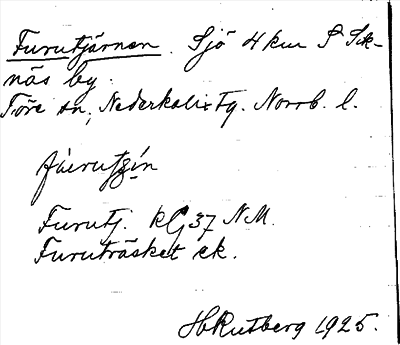 Furutjärnen. Sjö 4 km S Sik-
näs by.
Töre sn, Nederkalix Tg. Norrb. l.
Furutj. KG 37 N.M.
Furuträsket ek.
HRutberg 1925.